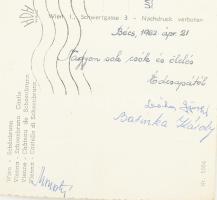 Wien 1., Schwertgasse 3 - Nachdruck verboten
Bécs, 1982 ápr. 21
Nagyon sok csók és ölelés
Édesapától
Barinka Károly
Wien - Schönbrunn
Vienna - Schoenbrunn Castle
Vienne - Château de Schoenbrunn
Vienna - Castello di Schoenbrunn